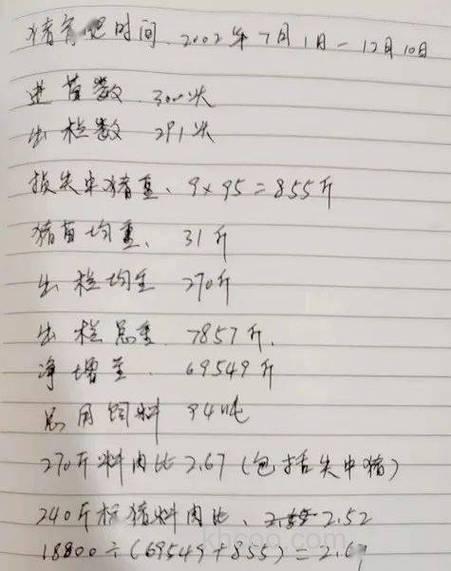 猪育肥时间、2002年7月1日-12月10日
进苗数、300头
出栏数 291头
损失中猪重、9×95=855斤
猪苗均重、31斤
出栏均重 270斤
出栏总重 7857斤.
净增重 69549斤
总用饲料 94吨
270斤料肉比2.67(包括失中猪)
240斤标猪料肉比、2.52
18800÷(69549+855)=2.67
khcoo.com